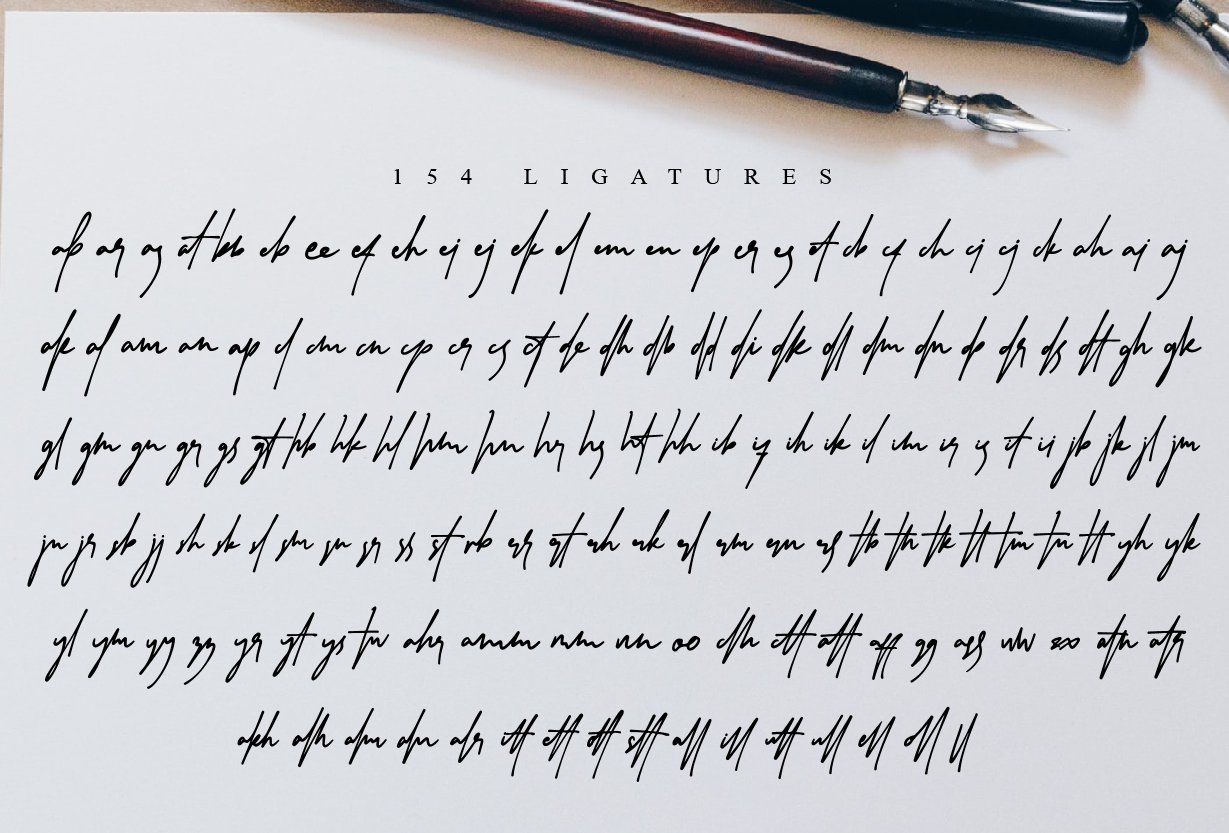 154 LIGATURES
ab ar as at bb eb ee ef eh ei ej ek el em en ep er es et cb cf ch ci cj ck ah ai aj
ak al am an ap cl cm cn cp cr cs ct de dh db dd di dk dl dm dn dp dr ds dt gh gk
gl gm gn gr gs gt hb hk hl hm hn hr hs ht hh ib if ih ik il im ir is it ii jb jk jl jm
jn jr sb jj sh sk sl sm sn sr ss st rb ur ut uh uk ul um un us tb th tk tl tm tn tt yh yk
yl ym yy zz yr yt ys tw ahr amm mm nn oo dh ctt att aff gg ass ww xx atn atr
akh alh alm aln alr itt ett ott stt all ill utt ull ell oll ll